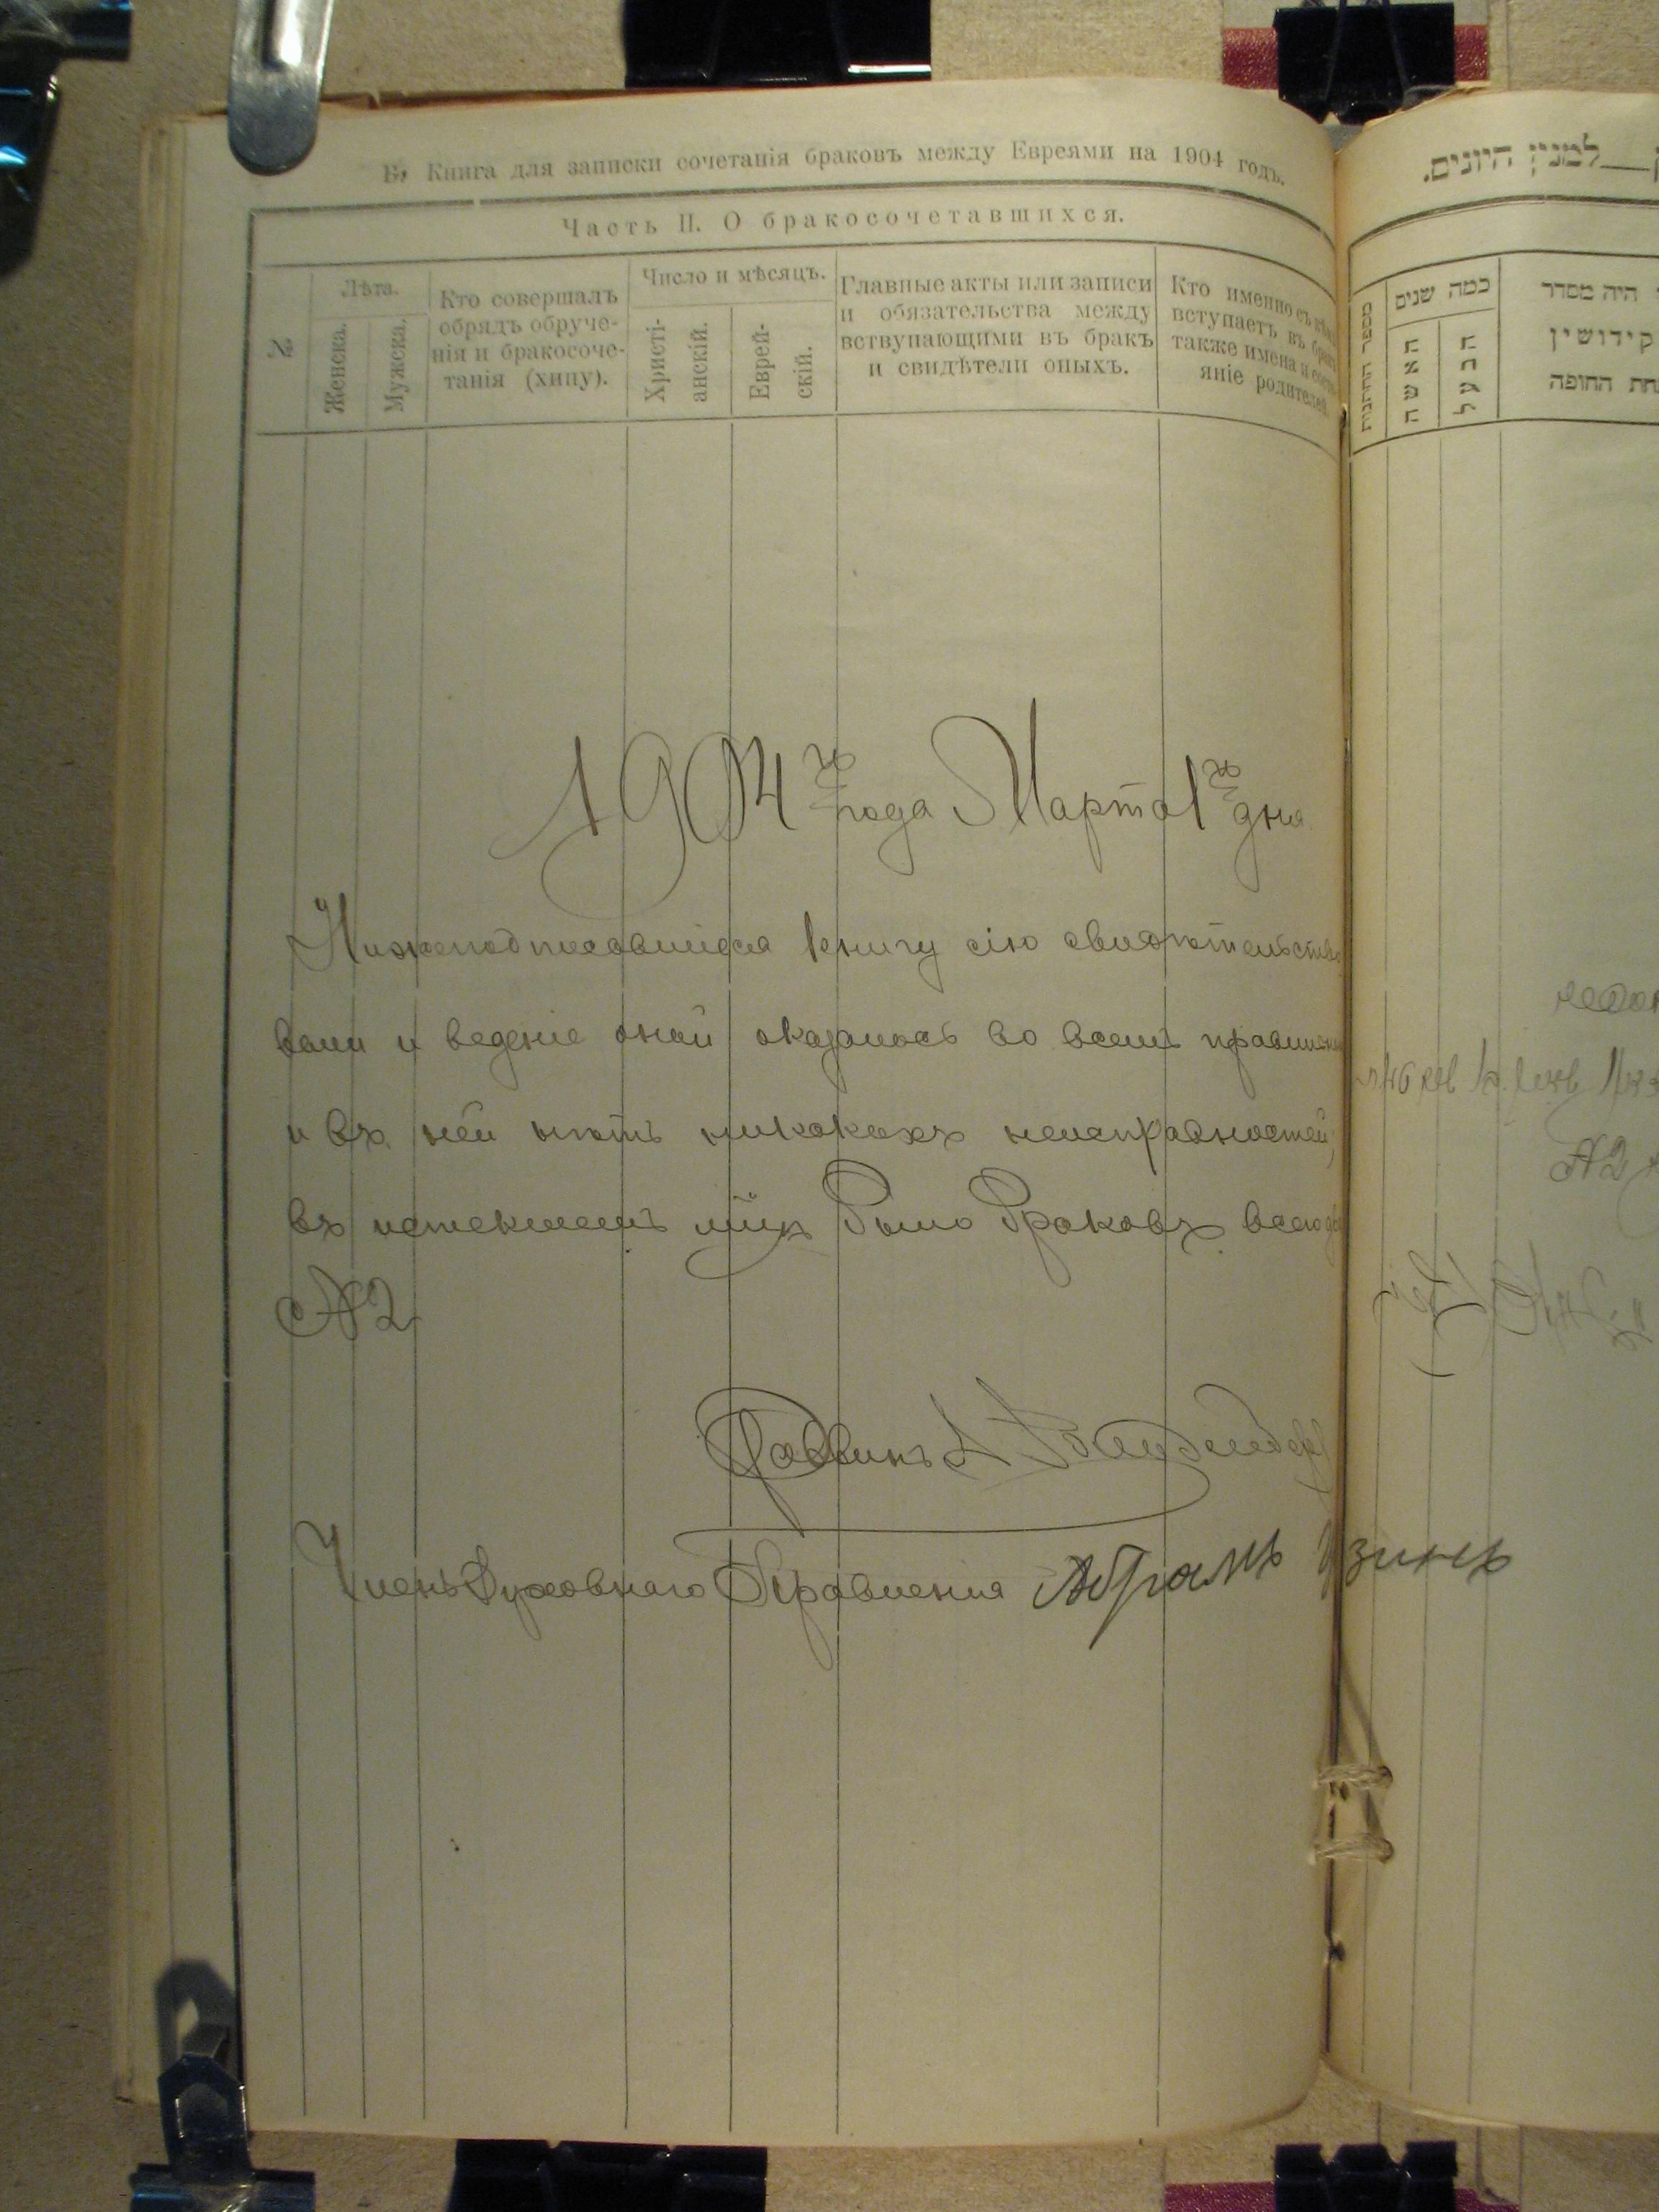 Книга для записки сочетанія браковъ между Евреями на 1904 годъ.
Часть II. О бракосочетавшихся.
№
Лѣта.
Женска.
Мужска.
Кто совершалъ
обрядъ обруче-
нія и бракосоче-
танія (хипу).
Число и мѣсяцъ.
Христі-
анскій.
Еврей-
скій.
Главные акты или записи
и обязательства между
вступающими въ бракъ
и свидѣтели оныхъ.
Кто именно съ кѣмъ
вступаетъ въ бракъ
также имена и состо-
яніе родителей.
1904 го года Марта 1 го дня
Нижеподписавшіеся книгу сію свидѣтельство
вали и веденіе оной оказалось во всемъ
и въ ней нѣтъ никакихъ неисправностей,
въ истекшемъ было браковъ всего
№ 2
Раввинъ
Членъ Духовнаго Правленія Абрамъ
למנין היונים.
מספר החתונות
כמה שנים
האשה
הבעל
היה מסדר
קידושין
החופה
№ 2